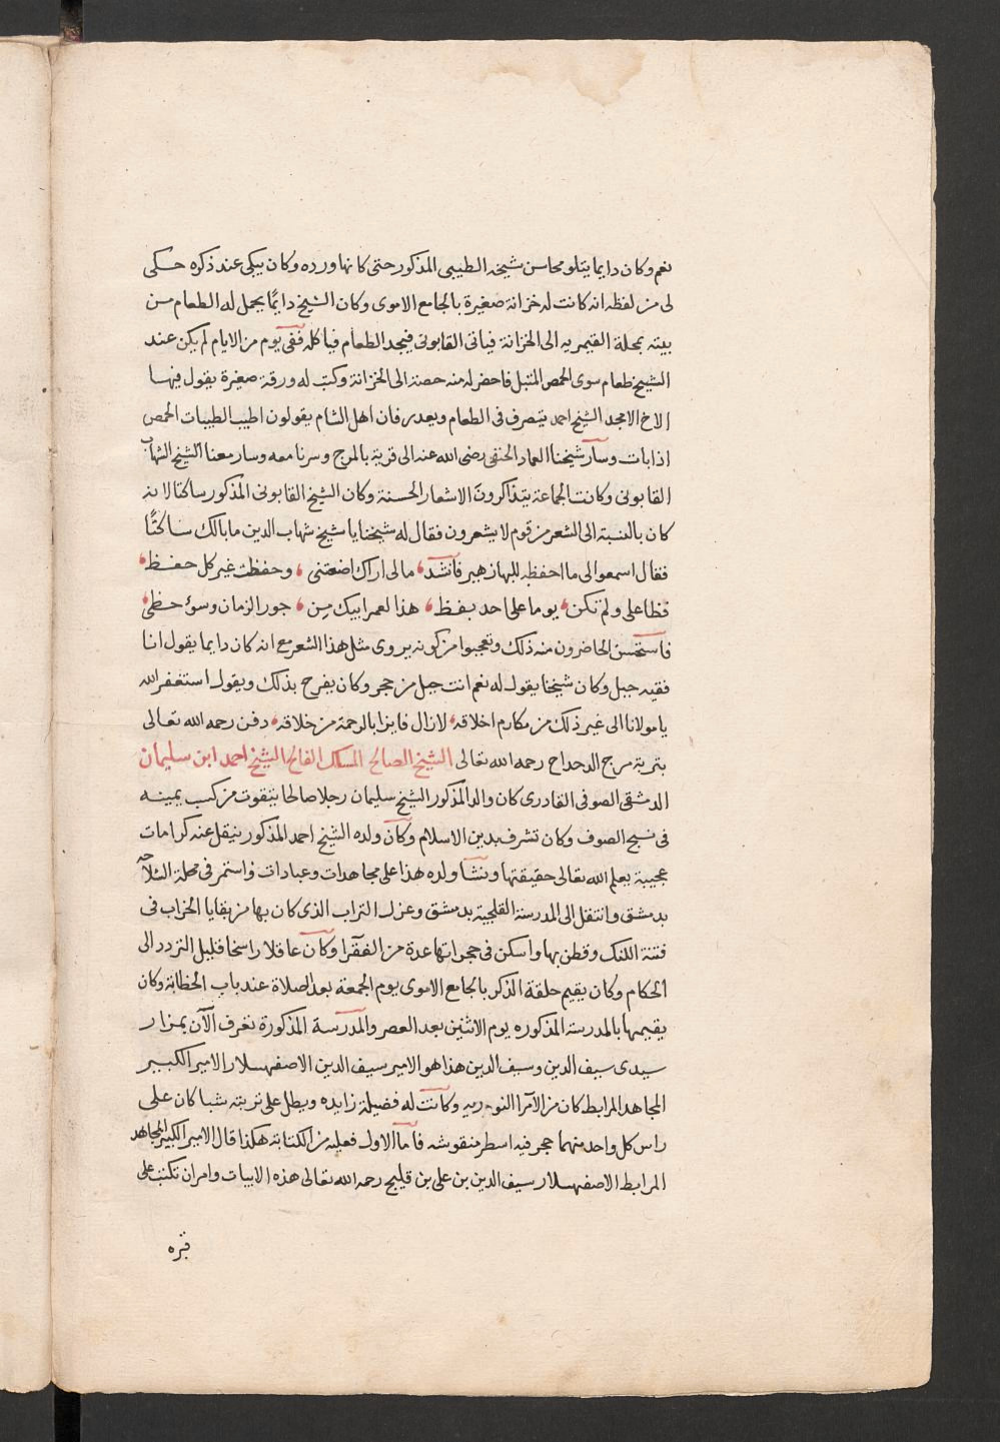 نعم وكان دايما يتلو محاسن شيخه الطيبي المذكور حتى كانها ورده وكان يبكي عند ذكره حكى
لي من لفظه انه كانت له خزانة صغيرة بالجامع الاموى وكان الشيخ دايمًا يحمل له الطعام من
بيته بمحلة القيمريه الى الخزانة فياتى القابونى فيجد الطعام فياكله ففي يوم من الايام لم يكن عند
الشيخ طعام سوى الحمص المتبل فاحضر له منه حصة الى الخزانة وكتب له ورقة صغيرة يقول فيها
الاخ الامجد الشيخ احمد يتصرف فى الطعام ويعذر فان اهل الشام يقولون اطيب الطيبات الحمص
اذا بات وسار شيخنا العماد الحنفي رضى الله عنه الى قرية بالمرج وسرنا معه وسار معنا الشيخ الشهاب
القابونى وكانت الجماعة يتذاكرون الاشعار الحسنة وكان الشيخ القابونى المذكور ساكتا لانه
كان بالنسبة الى الشعر من قوم لا يشعرون فقال له شيخنا يا شيخ شهاب الدين ما بالك ساكتًا
فقال اسمعوا لى ما احفظه للبهاز هير فانشد ، مالى اراك اضعتنى ، وحفظت غيرى كل حفظ ،
فظا على ولم تكن ، يوما على احد بفظ ، هذا لعمر ابيك من ، جور الزمان وسوء حظى ،
فاستحسن الحاضرون منه ذلك وتعجبوا من كونه يروى مثل هذا الشعر مع انه كان دايما يقول انا
فقيه جبل وكان شيخنا يقول له نعم انت جبل من حجر وكان يفرح بذلك ويقول استغفر الله
يا مولانا الى غير ذلك من مكارم اخلاقه ، لازال فايزا بالرحمة من خلاقه ، دفن رحمه الله تعالى
بتربة مرج الدحداح رحمه الله تعالى الشيخ الصالح المسلك الفالح الشيخ احمد ابن سليمان
الدمشقى الصوفى القادرى كان والد المذكور الشيخ سليمان رجلا صالحا يتقوت من كسب يمينه
فى نسج الصوف وكان تشرف بدين الاسلام وكان ولده الشيخ احمد المذكور ينقل عنه كرامات
عجيبة يعلم الله تعالى حقيقتها ونشا ولده هذا على مجاهدات وعبادات واستمر فى محلة الثلاجه
بدمشق وانتقل الى المدرسة القلجية بدمشق وعزل التراب الذى كان بها من بقايا الخراب فى
فتنة اللنك وقطن بها واسكن فى حجراتها عدة من الفقرا وكان عاقلا راسخا قليل التردد الى
الحكام وكان يقيم حلقة الذكر بالجامع الاموى يوم الجمعة بعد الصلاة عند باب الخطابة وكان
يقيمها بالمدرسة المذكوره يوم الاثنين بعد العصر والمدرسة المذكورة تعرف الآن بمزار
سيدى سيف الدين وسيف الدين هذا هو الامير سيف الدين الاصفهسلار الامير الكبير
المجاهد المرابط كان من الامرا النوريه وكانت له فضيلة زايده ويطل على تربته شباكان على
راس كل واحد منهما حجر فيه اسطر منقوشه فاما الاول فعليه من الكتابة هكذا قال الامير الكبير المجاهد
المرابط الاصفهسلار سيف الدين بن على بن قليج رحمه الله تعالى هذه الابيات وامر ان تكتب على
قبره